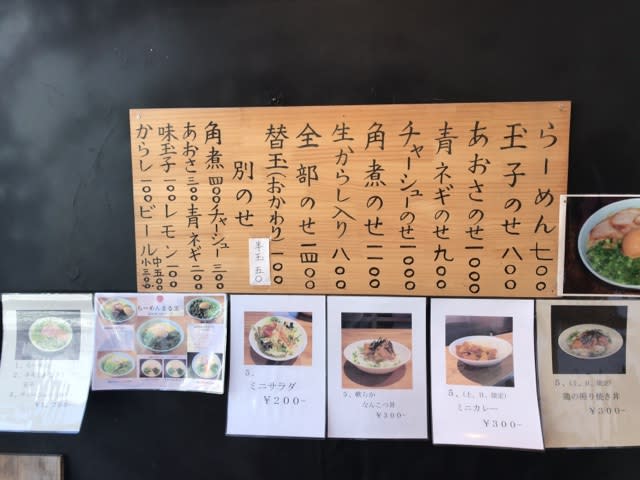 らーめん 七〇〇
玉子のせ 八〇〇
あおさのせ 一〇〇〇
青ネギのせ 九〇〇
チャーシューのせ 一〇〇〇
角煮のせ 一一〇〇
生からし入り 八〇〇
全部のせ 一四〇〇
替玉(おかわり) 一〇〇
半玉 五〇
別のせ
角煮 四〇〇 チャーシュー 三〇〇
あおさ 三〇〇 青ネギ 二〇〇
味玉子 一〇〇 レモン 一〇〇
からし 一〇〇 ビール 中 五〇〇 小 三〇〇
らーめんまる玄
5、
ミニサラダ
¥200~
5、軟らか
なんこつ丼
¥300~
5、(土、日、限定)
ミニカレー
¥300~
5、(土、日、限定)
鶏の照り焼き丼
¥300~